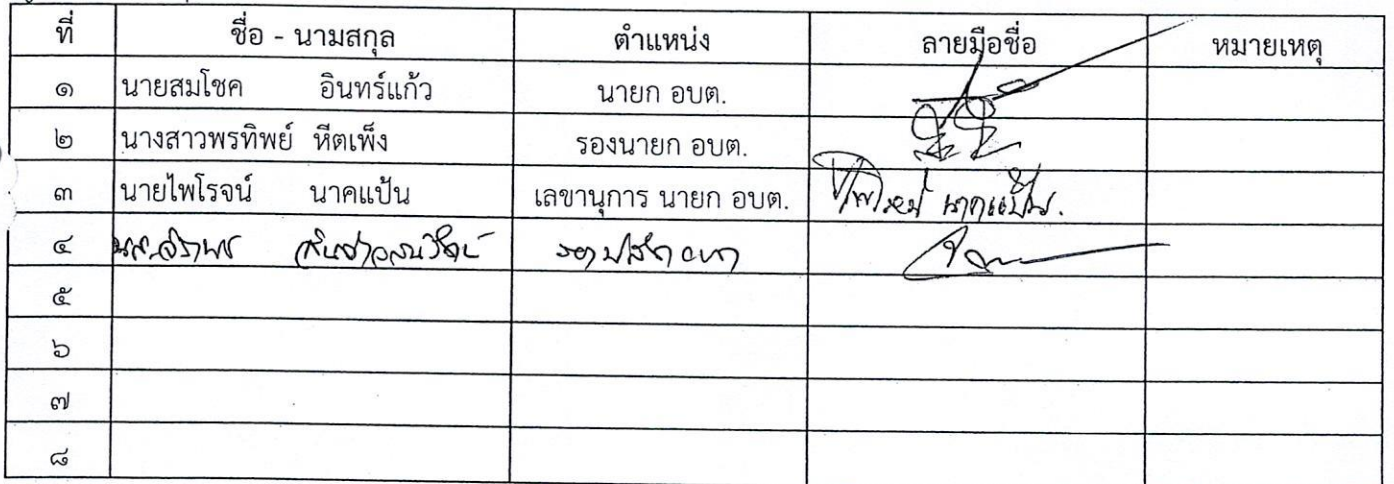 ที่ ชื่อ - นามสกุล ตำแหน่ง ลายมือชื่อ หมายเหตุ
๑ นายสมโชค อินทร์แก้ว นายก อบต.
๒ นางสาวพรทิพย์ หีตเพ็ง รองนายก อบต.
๓ นายไพโรจน์ นาคแป้น เลขานุการ นายก อบต. ไพโรจน์ นาคแป้น.
๔
๕
๖
๗
๘